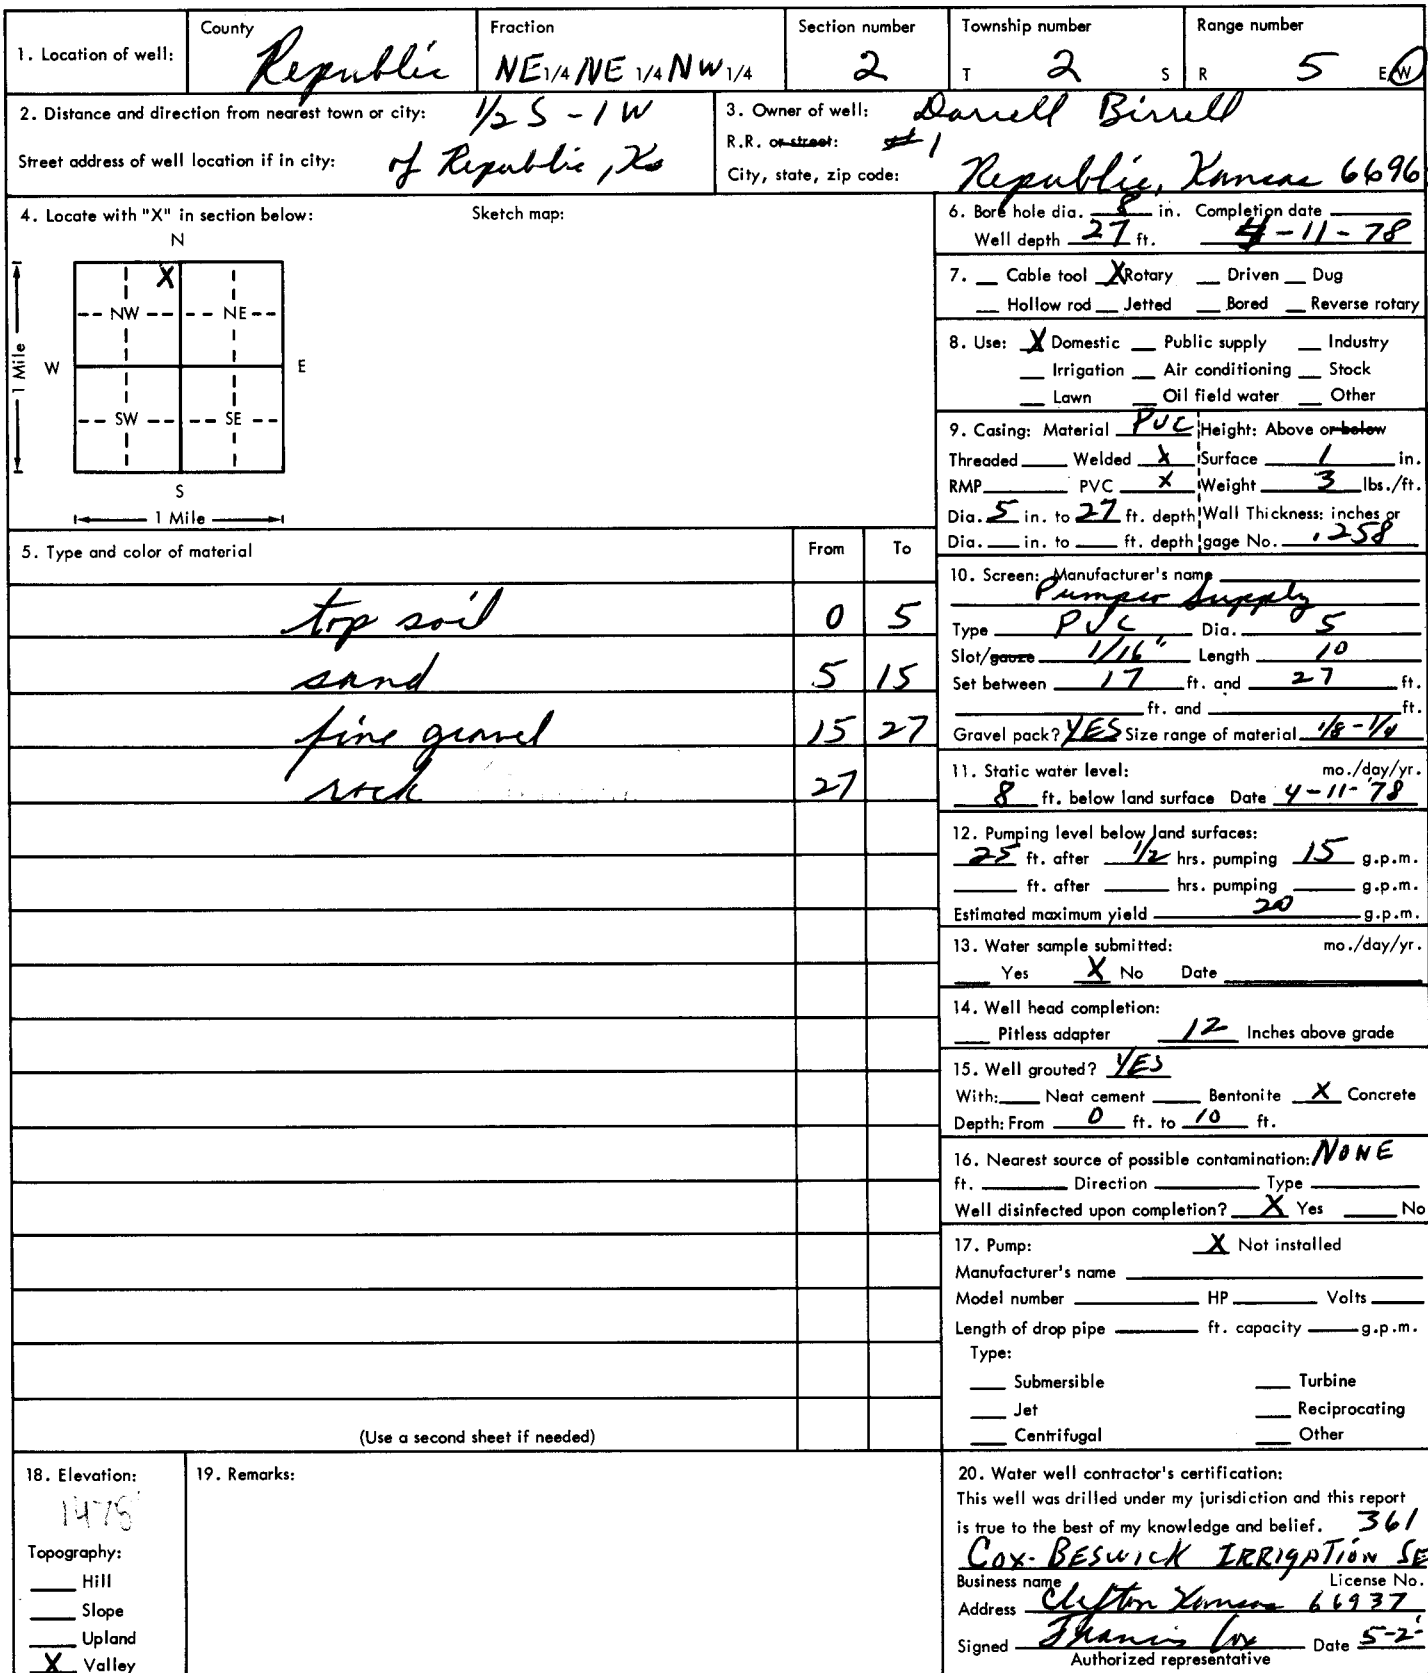 1. Location of well: County Republic Fraction NE 1/4 NE 1/4 NW 1/4 Section number 2 Township number T 2 S Range number R 5 E/W
2. Distance and direction from nearest town or city: 1/2 S - 1 W
Street address of well location if in city: of Republic, Ks
3. Owner of well: Darrell Birrell
R.R. or street: #1
City, state, zip code: Republic, Kansas 6696
4. Locate with "X" in section below: Sketch map:
N
X
NW NE
W E
1 Mile
SW SE
S
1 Mile
5. Type and color of material From To
top soil 0 5
sand 5 15
fine gravel 15 27
rock 27
(Use a second sheet if needed)
6. Bore hole dia. 8 in. Completion date
Well depth 27 ft. 4-11-78
7. Cable tool X Rotary Driven Dug
Hollow rod Jetted Bored Reverse rotary
8. Use: X Domestic Public supply Industry
Irrigation Air conditioning Stock
Lawn Oil field water Other
9. Casing: Material PVC Height: Above or below
Threaded Welded X Surface 1 in.
RMP PVC X Weight 3 lbs./ft.
Dia. 5 in. to 27 ft. depth Wall Thickness: inches or
Dia. in. to ft. depth gage No. .258
10. Screen: Manufacturer's name
Supply
Type PVC Dia. 5
Slot/gauze 1/16" Length 10
Set between 17 ft. and 27 ft.
ft. and ft.
Gravel pack? YES Size range of material 1/8 - 1/4
11. Static water level: mo./day/yr.
8 ft. below land surface Date 4-11-78
12. Pumping level below land surfaces:
25 ft. after 1/2 hrs. pumping 15 g.p.m.
ft. after hrs. pumping g.p.m.
Estimated maximum yield 20 g.p.m.
13. Water sample submitted: mo./day/yr.
Yes X No Date
14. Well head completion:
Pitless adapter 12 Inches above grade
15. Well grouted? YES
With: Neat cement Bentonite X Concrete
Depth: From 0 ft. to 10 ft.
16. Nearest source of possible contamination: NONE
ft. Direction Type
Well disinfected upon completion? X Yes No
17. Pump: X Not installed
Manufacturer's name
Model number HP Volts
Length of drop pipe ft. capacity g.p.m.
Type:
Submersible Turbine
Jet Reciprocating
Centrifugal Other
18. Elevation:
1478
Topography:
Hill
Slope
Upland
X Valley
19. Remarks:
20. Water well contractor's certification:
This well was drilled under my jurisdiction and this report
is true to the best of my knowledge and belief. 361
COX-BESWICK IRRIGATION SE
Business name License No.
Address Clifton Kansas 66937
Signed Francis Cox Date 5-2-
Authorized representative